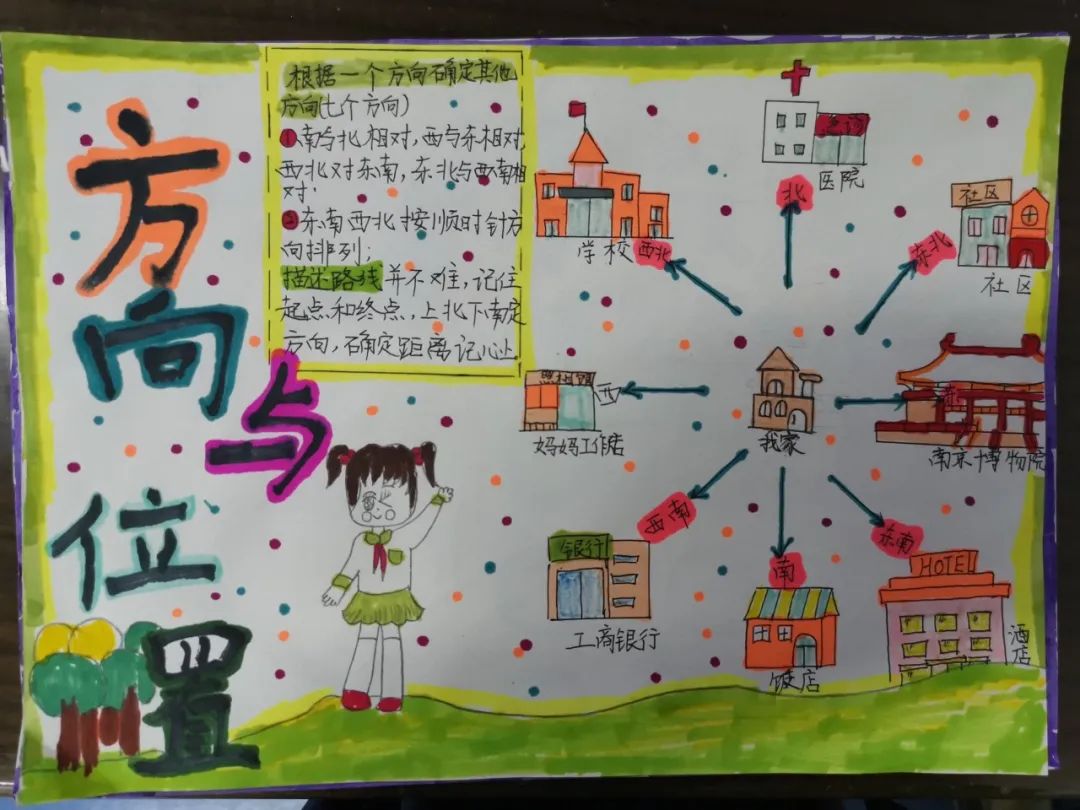 方向与位置
根据一个方向确定其他
方向(七个方向)
①南与北相对,西与东相对,
西北对东南,东北与西南相
对.
②东南西北按顺时针方
向排列;
描述路线并不难,记住
起点和终点,上北下南定
方向,确定距离记心上
医院
北
学校
西北
东北
社区
社区
西
妈妈工作店
我家
东
南京博物院
西南
南
东南
银行
工商银行
饭店
HOTEL
酒店